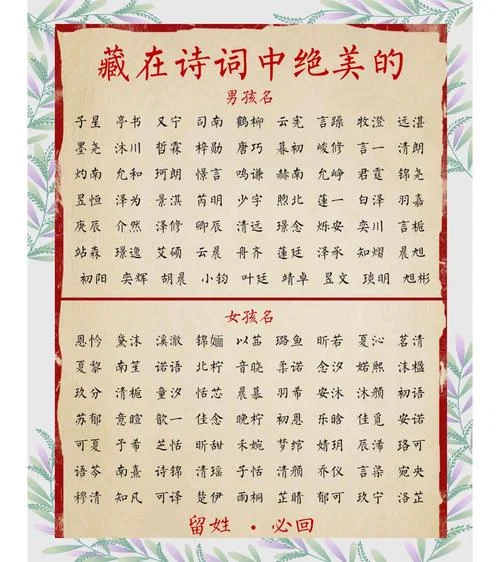 藏在诗词中绝美的
男孩名
子星 亭书 又宁 司南 鹤柳 云宪 言躁 牧澄 远湛
墨尧 沐川 哲霖 梓勋 唐巧 暮初 峻修 言一 清朗
灼南 允和 珂朗 憬言 鸣谦 赫南 允峥 君霆 锦尧
昱恒 泽为 景淇 芮明 少宇 煦北 蓬一 白泽 羽嘉
庚辰 介然 泽修 卿辰 清远 璟念 烁安 奕川 言栀
站森 璟逸 艾硕 云晨 舟齐 莲廷 泽承 知熠 晨旭
初阳 奕辉 胡晨 小钧 叶廷 靖卓 昱文 琰明 旭彬
女孩名
恩忴 黛沫 溪澈 锦婳 以苗 璐鱼 昕若 夏沁 茗清
夏黎 南笙 诺语 北柠 音晓 柔诺 念汐 婼熙 沫楹
玖分 清栀 童汐 恬芯 晨暮 羽希 安沐 沐颜 初语
苏郁 意暄 歆一 佳念 晚柠 初恩 乐晗 佳觅 安诺
可夏 予希 芝恬 昕甜 禾婉 梦绾 婧玥 辰浠 珞可
语芩 南熹 诗锦 清瑶 子恬 清颜 乔仪 言染 宛央
穆清 知凡 可译 楚伊 雨桐 芷晴 郁可 玖宁 洛芷
留姓 · 必回